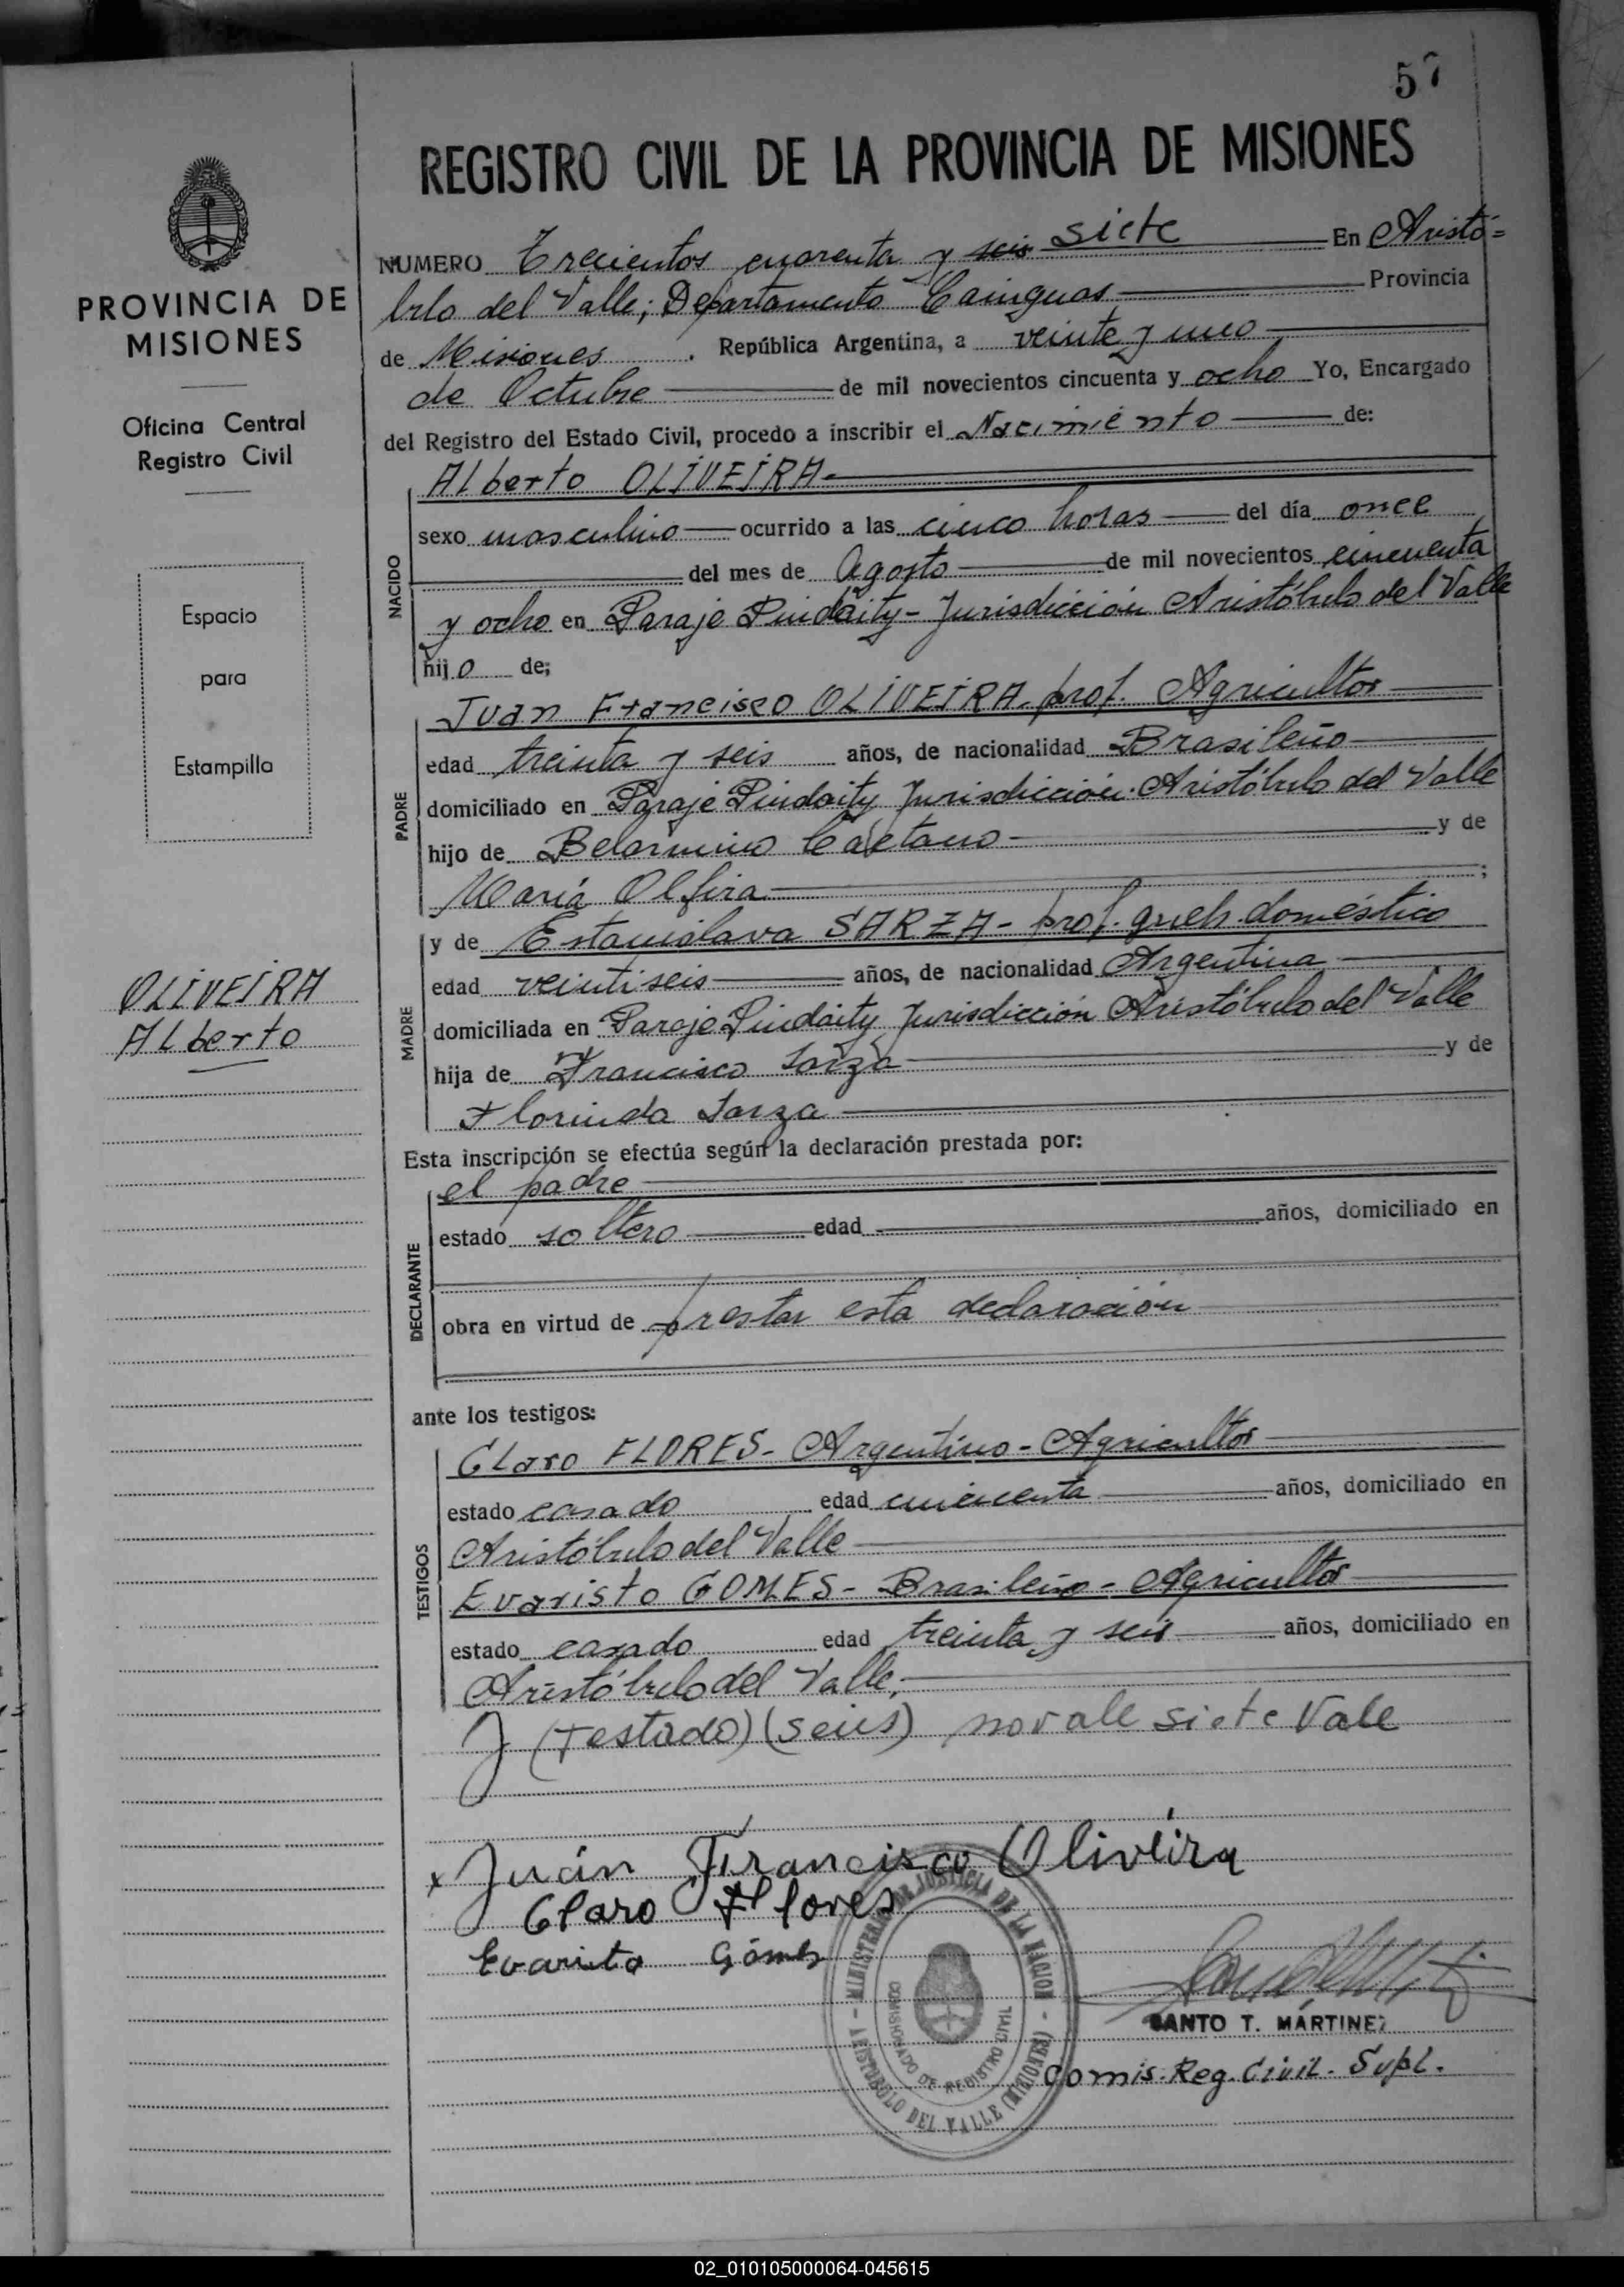 57
REGISTRO CIVIL DE LA PROVINCIA DE MISIONES
NUMERO Trecientos cuarenta y seis siete En Aristó=
bulo del Valle; Departamento Cainguas Provincia
de Misiones. República Argentina, a veinte y uno
de Octubre de mil novecientos cincuenta y ocho Yo, Encargado
del Registro del Estado Civil, procedo a inscribir el Nacimiento de:
NACIDO
Alberto OLIVEIRA
sexo masculino ocurrido a las cinco horas del día once
del mes de Agosto de mil novecientos cincuenta
y ocho en Paraje Pindaity - Jurisdicción Aristóbulo del Valle
hijo de;
PADRE
Juan Francisco OLIVEIRA. prof. Agricultor
edad treinta y seis años, de nacionalidad Brasileño
domiciliado en Paraje Pindaity Jurisdicción Aristóbulo del Valle
hijo de Belarmino Caetano y de
María Olfira;
MADRE
y de Estanislava SARZA - prof. queh. doméstico
edad veintiseis años, de nacionalidad Argentina
domiciliada en Paraje Pindaity Jurisdicción Aristóbulo del Valle
hija de Francisco Sarza y de
Florinda Sarza
Esta inscripción se efectúa según la declaración prestada por:
DECLARANTE
el padre
estado soltero edad años, domiciliado en
obra en virtud de prestar esta declaración
ante los testigos:
TESTIGOS
Claro FLORES - Argentino - Agricultor
estado casado edad cincuenta años, domiciliado en
Aristóbulo del Valle
Evaristo GOMES - Brasileño - Agricultor
estado casado edad treinta y seis años, domiciliado en
Aristóbulo del Valle,
(Testado) (seis) no vale siete Vale
x Juán Francisco Oliveira
Claro Flores
Evaristo Gómes
MINISTERIO DE JUSTICIA DE LA NACION - ARISTOBULO DEL VALLE (MISIONES) -
COMISIONADO DE REGISTRO CIVIL
SANTO T. MARTINEZ
Comis. Reg. Civil. Supl.
PROVINCIA DE
MISIONES
Oficina Central
Registro Civil
Espacio
para
Estampilla
OLIVEIRA
Alberto
02_010105000064-045615